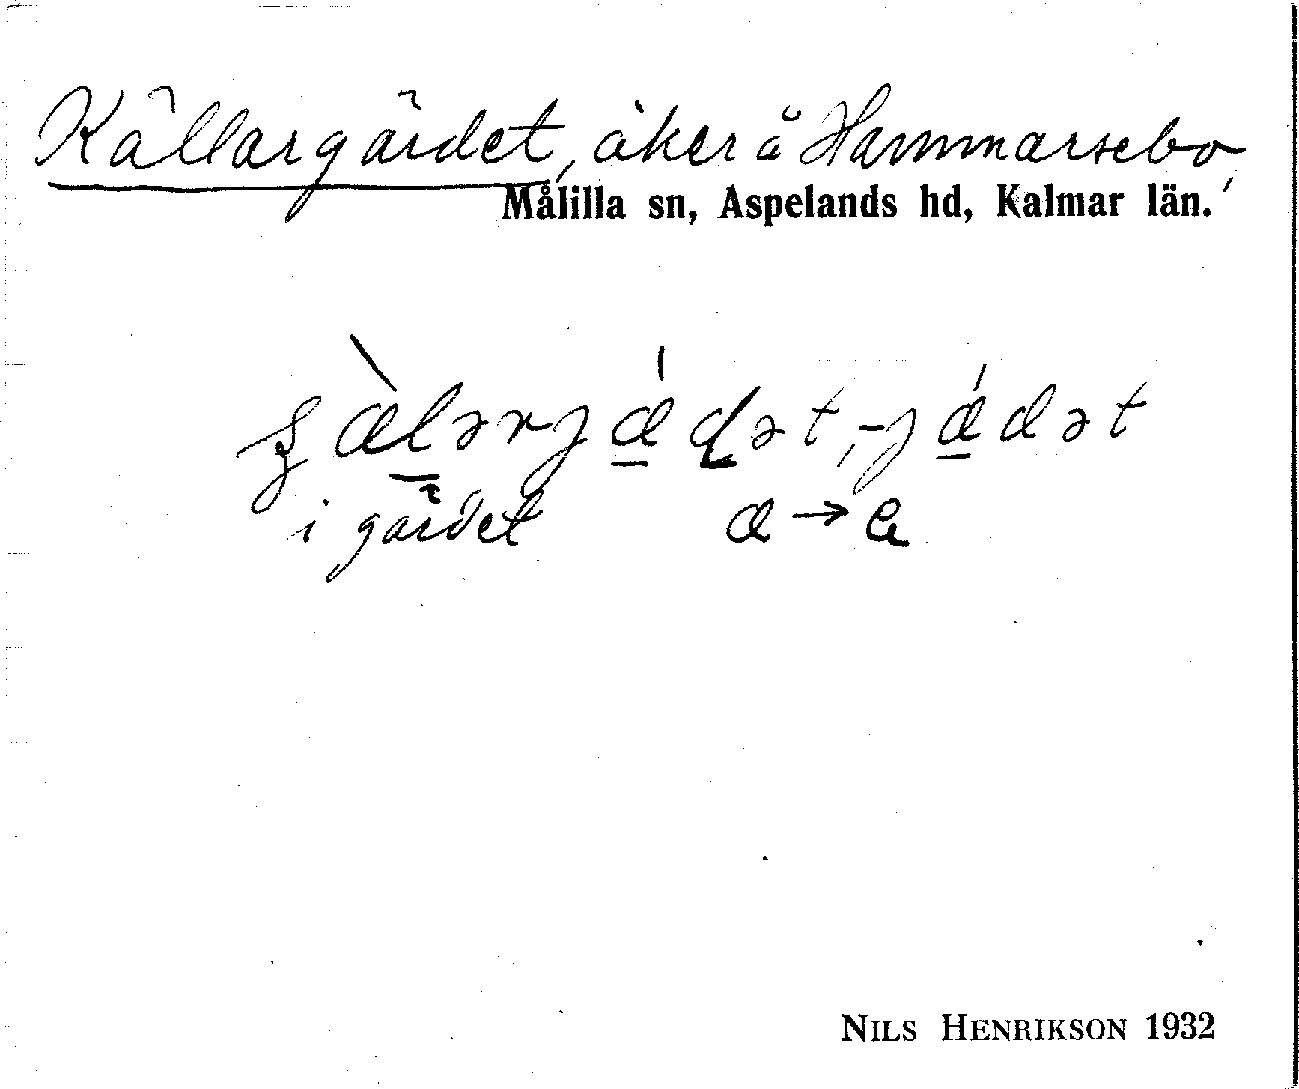 Källargärdet, åker å Hammarsebo,
Målilla sn, Aspelands hd, Kalmar län.
i gärdet æ → e
NILS HENRIKSON 1932